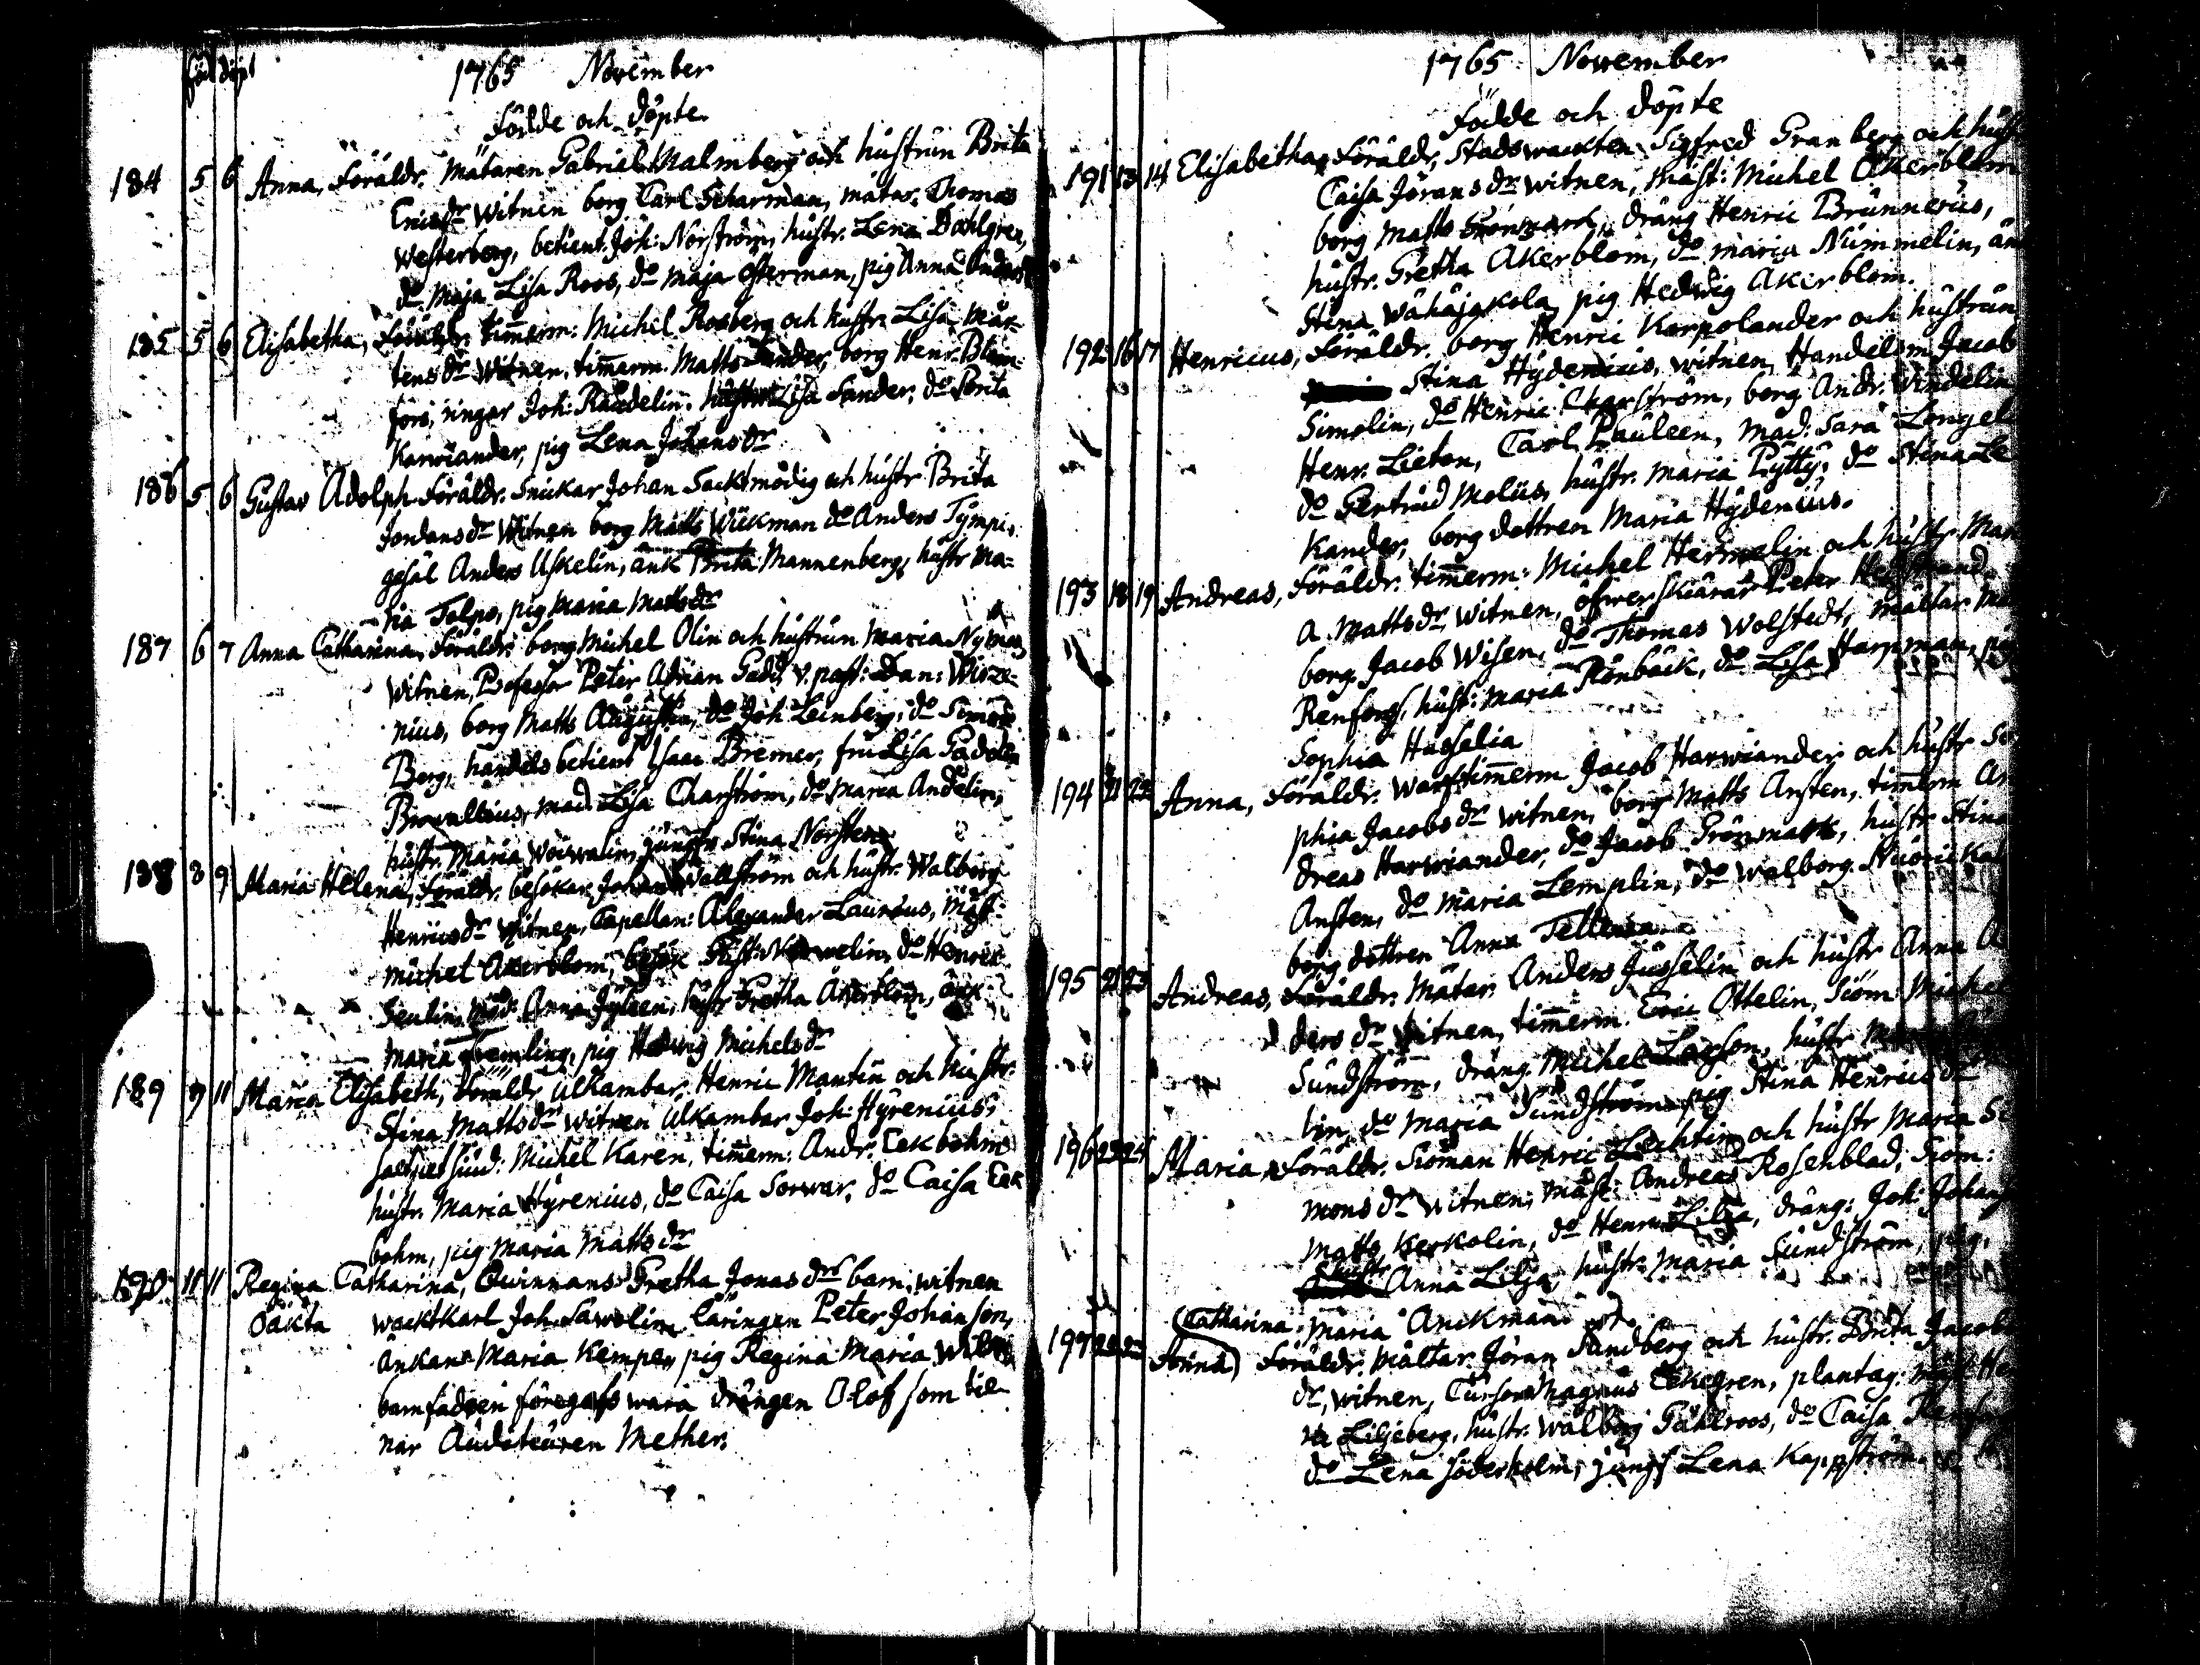 föd döpt
1765 November
Födde och döpte
184 5 6 Anna, Föräldr. Mätaren Gabriel Malmberg och hustrun Brita
Ericsdr witnen borg Carl Scharman, mätar. Thomas
Westerberg, betient. Joh: Norström, hustr. Lena Dahlgren,
do Maja Lisa Roos, do Maja Osterman, pig Anna
185 5 6 Elisabetha, Föräldr. tim̅erm: Michel Rosberg och hustr. Lisa Mår-
tensdr witnen, tim̅erm. Matts Sander, borg Henr. Blom
fors, ringar Joh: Randelin. hustr Lisa Sander, do Brita
Karwiander, pig Lena Johansdr
186 5 6 Gustav Adolph Föräldr. Snickar Johan Sacktmodig och hustr Brita
Jordansdr witnen borg Matts Wickman do Anders Tympi,
gesäl Anders Uskelin, änk Brita Mannenberg, hustr Ma-
ria Tolpo, pig Maria Mattsdr
187 6 7 Anna Catharina, Föräldr. borg Michel Olin och hustrun Maria Nyman,
witnen, Professor Peter Adrian Gadd, v. past: Dan: Wirze-
nius, borg Matts Augustin, do Joh Leinberg, do Simon
Borg, handels betient Isaac Bremer, fru Lisa Gadolin
Browallius, mad. Lisa Charström, do Maria Andelin,
hustr. Maria Woiwalin, jungfr Stina Norsten
188 8 9 Maria Helena, Föräldr. besökar Johan Wallström och hustr. Walborg
Henricsdr witnen, Capellan: Alexander Lauræus, Mäst.
Michel Åkerblom, do Henric
Seulin, mad. Anna Jyleen, hustr Gretha Åkerblom, änk
Maria Fremling, pig Hedwig Michelsdr
189 9 11 Maria Elisabeth, Föräldr. Ulkambar. Henric Mantin och hustr.
Stina Mattsdr witnen Ulkambar Joh: Hyrenius,
Michel Karen, tim̅erm: Andr. Eekbohm
hustr. Maria Hyrenius, do Caisa Sorwar, do Caisa Eek
bohm, pig Maria Mattsdr
190 11 11 Regina Catharina, Qwinnans Gretha Jonasdrs barn, witnen
Oäkta wacktkarl Joh. Sawolin, läringen Peter Johanson,
änkan Maria Kempe, pig Regina Maria
barnfadren föregafs wara drängen Olof som tie-
nar Auditeuren Mether.
1765 November
Födde och döpte
191 13 14 Elisabetha, Föräldr. Stadswackten Sigfred Granberg och hust
Caisa Jöransdr, witnen, Mäst: Michel Åkerblom
borg Matts Gronmark, dräng Henric Brunnerus,
hustr. Gretha Åkerblom, do Maria Nummelin, än
Stina Wähäjakola, pig Hedwig Åkerblom.
192 16 17 Henricus, Föräldr. borg Henric Korpolander och hustrun
Stina Hydenius, witnen, Handelsm Jacob
Simolin, do Henric Charström, borg Andr. Windelin
Henr. Lieton, Carl Pauleen, mad: Sara Lengel
do Gertrud Molius, hustr. Maria Pytty, do Stina Le
Kander, borg dottren Maria Hydenius.
193 18 19 Andreas, Föräldr. tim̅erm: Michel Hermelin och hustr Mar
a Mattsdr, witnen, öfwerskiärar Peter
borg Jacob Wisen, do Thomas Wolstedt, mältar
Renfors, hust: Maria Rönbäck, do Lisa Harpman, pi
Sophia Hasselia
194 21 22 Anna, Föräldr. Warfstim̅erm Jacob Harwiander och hustr So
phia Jacobsdr witnen, borg Matts Ansten, tim̅erm An
dreas Harwiander, do Jacob Grönmark, hustr Stina
Ansten, do Maria Lemplin, do Walborg
borg dottren Anna
195 21 23 Andreas, Föräldr. Mätar Anders Jusselin och hustr Anna A
dersdr witnen, tim̅erm. Eric Ottelin, Siöm Michel
Sundström, dräng Michel Larson, hustr
lin, do Maria Sundström, pig Stina Henricsdr
196 23 24 Maria, Föräldr. Siöman Henric Lechtin och hustr Maria Si
monsdr witnen, Mäst: Andreas Rosenblad, Siöm:
Matts Kerkolin, do Henric Lilja, dräng: Joh: Johans
hustr Anna Lilja, hustr. Maria Sundström, pig.
Maria Anckman
197 Catharina Anna) Föräldr. Mältar Jöran Sandberg och hustr. Brita Jacobs
dr, witnen, Cursor Magnus Eekegren, plantag: mäst He
Liljeberg, hustr. Walborg Gahlroos, do Caisa
do Lena Söderholm, jungf Lena Kappström